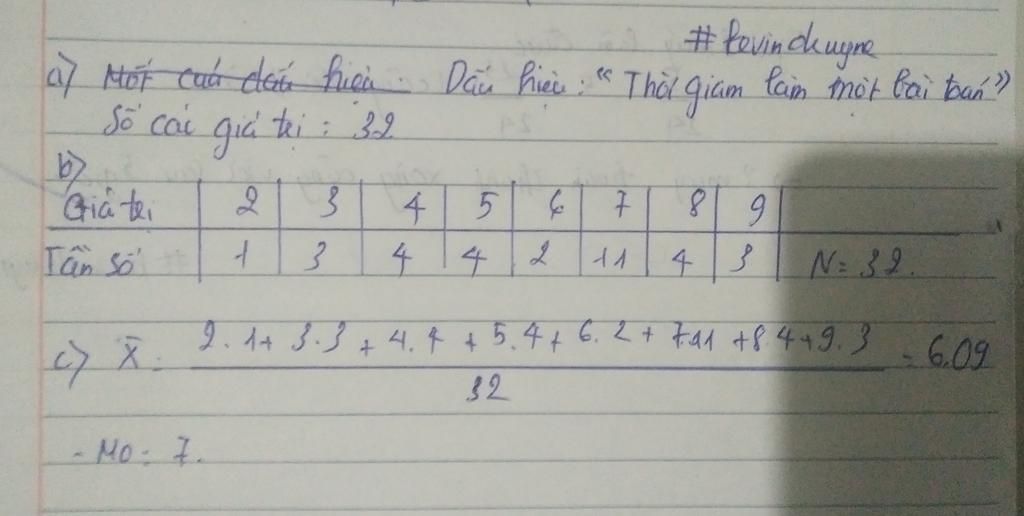 #kevinduyne
a) Mốt của dấu hiệu: Dấu hiệu: “Thời gian làm một bài toán”
Số các giá trị: 32
b)
Giá trị | 2 | 3 | 4 | 5 | 6 | 7 | 8 | 9 |
Tần số | 1 | 3 | 4 | 4 | 2 | 11 | 4 | 3 | N = 32.
c) X̄ = 2.1+ 3.3 + 4.4 + 5.4 + 6.2 + 7.11 + 8.4 + 9.3 = 6.09
32
- Mo = 7.